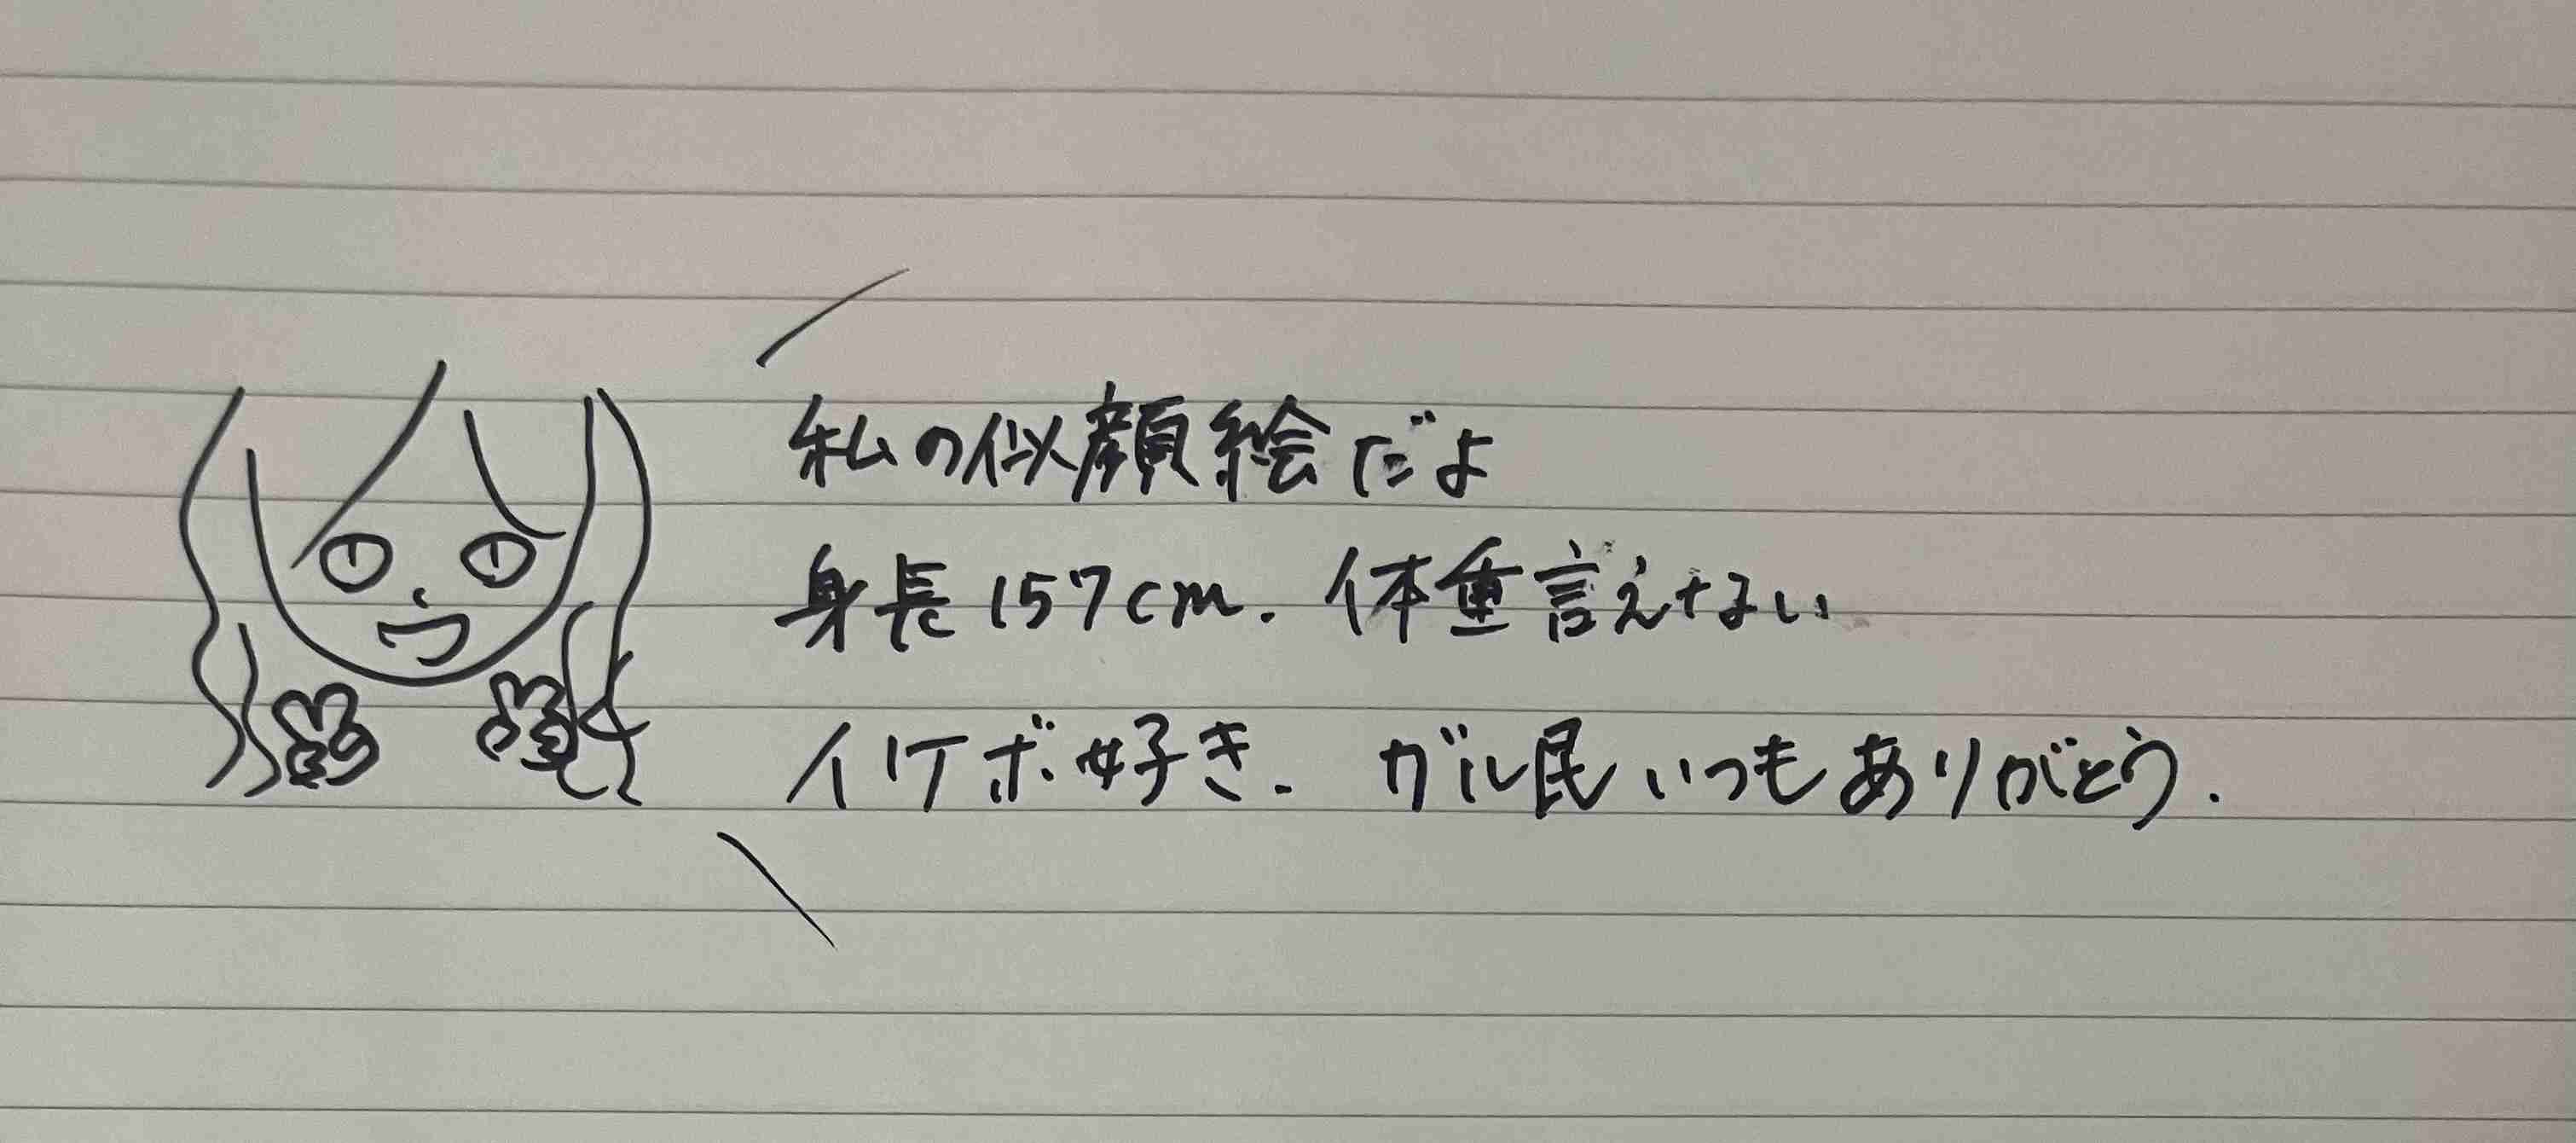 私の似顔絵だよ
身長157cm. 体重言えない
イケボ好き. ガル民いつもありがとう.